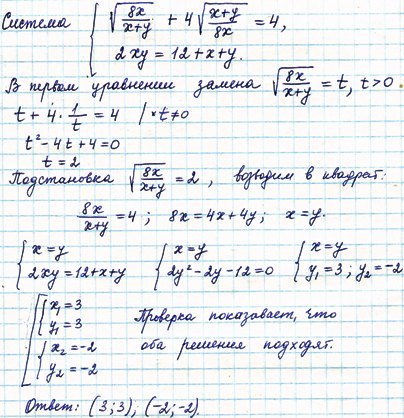 Система { √(8x/(x+y)) + 4√((x+y)/(8x)) = 4,
2xy = 12 + x + y.
В первом уравнении замена √(8x/(x+y)) = t, t>0
t + 4 · 1/t = 4 | × t≠0
t² - 4t + 4 = 0
t = 2
Подстановка √(8x/(x+y)) = 2, возводим в квадрат:
8x/(x+y) = 4; 8x = 4x + 4y; x = y.
{ x = y { x = y { x = y
2xy = 12 + x + y 2y² - 2y - 12 = 0 y₁ = 3; y₂ = -2
[ { x₁ = 3
y₁ = 3 Проверка показывает, что
{ x₂ = -2 оба решения подходят.
y₂ = -2
Ответ: (3; 3), (-2; -2).